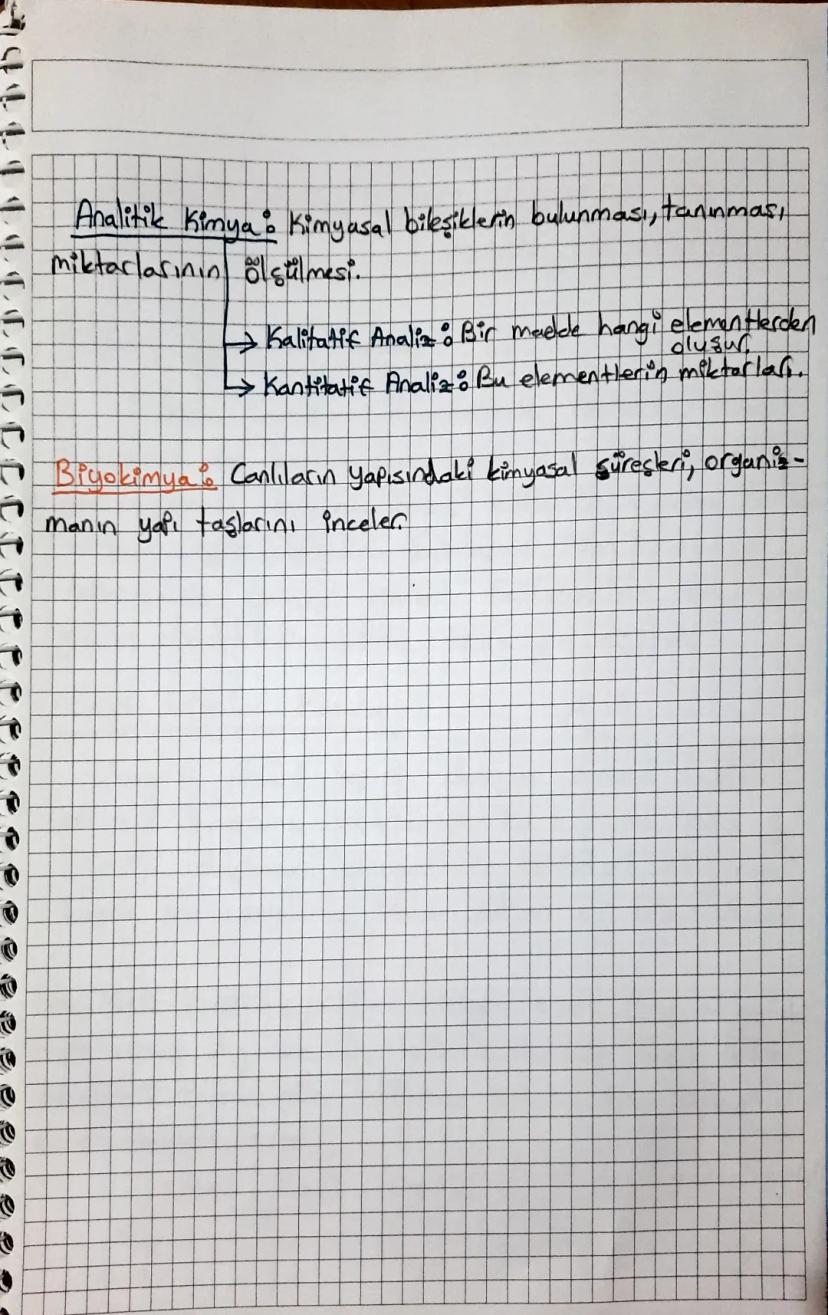 Analitik Kimya: Kimyasal bileşiklerin bulunması, tanınması,
miktarlarının ölçülmesi.
→ Kalitatif Analiz: Bir madde hangi elementlerden
oluşur.
→ Kantitatif Analiz: Bu elementlerin miktarları.
Biyokimya: Canlıların yapısındaki kimyasal süreşleri, organiz-
manın yapı taşlarını inceler.